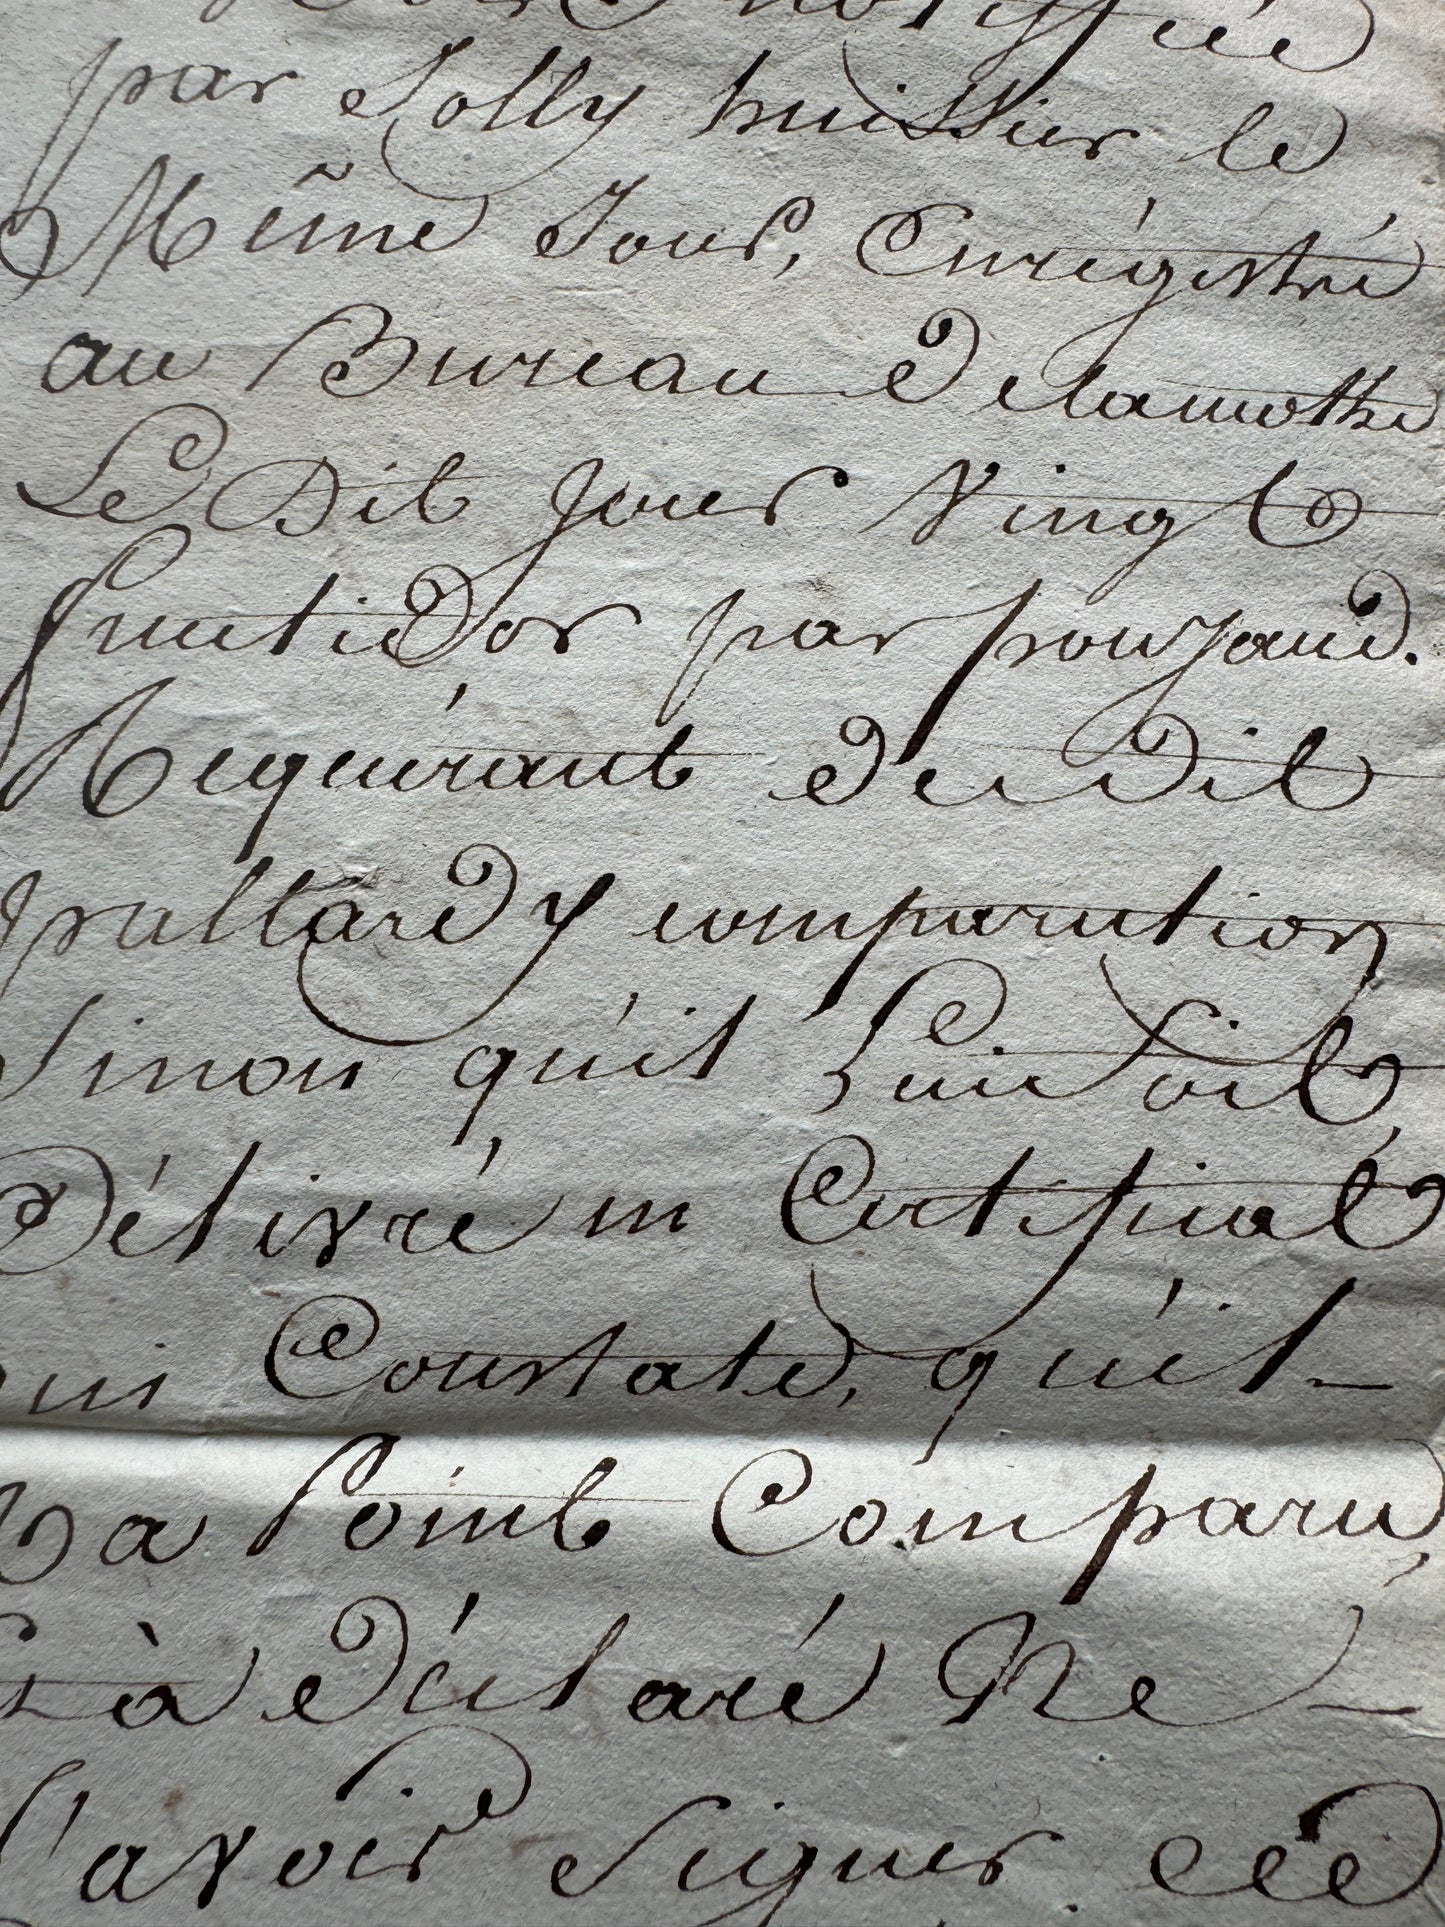 notiffiée
par Jolly huissier le
Même Jour, Enrégistré
au Bureau Delamothe
Le Dit jour Vingt
fructidor par poujaud.
Requérant de Dit
pallard y comparution
Sinon qu'il Lui Soit
Délivré un Certificat
qui Constate, qu'il
na Point Comparu,
Et à déclaré Ne
Savoir Signer